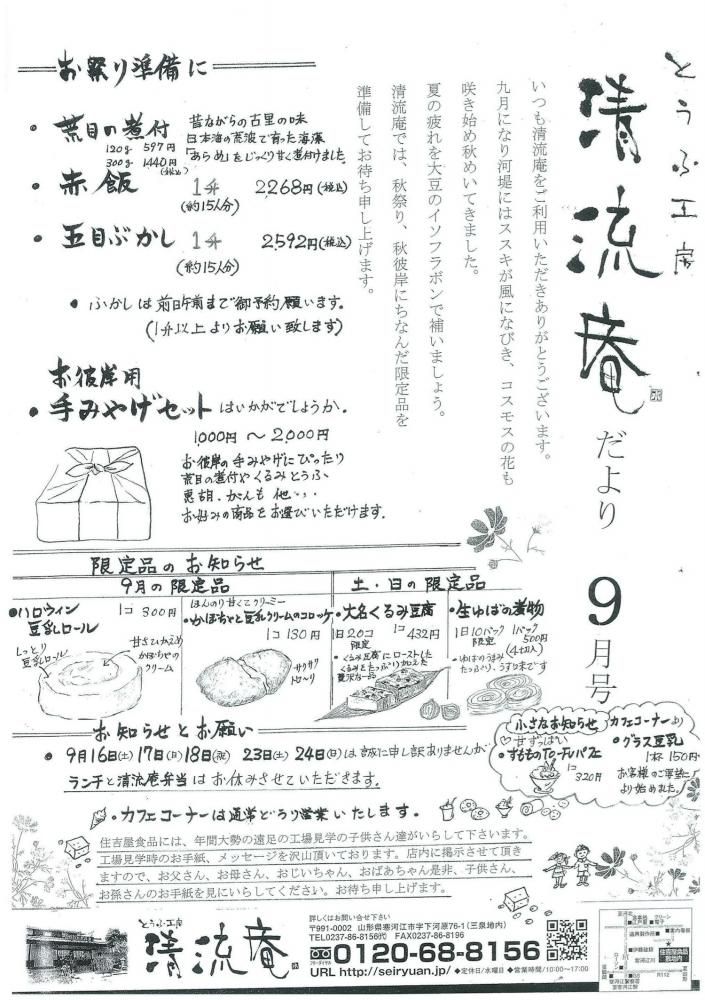 とうふ工房
清流庵
だより
9月号
いつも清流庵をご利用いただきありがとうございます。
九月になり河堤にはススキが風になびき、コスモスの花も
咲き始め秋めいてきました。
夏の疲れを大豆のイソフラボンで補いましょう。
清流庵では、秋祭り、秋彼岸にちなんだ限定品を
準備してお待ち申し上げます。
お祭り準備に
・荒目の煮付
120g 597円
300g 1440円(税込)
昔ながらの古里の味
日本海の荒波で育った海藻
「あらめ」をじっくり甘く煮付けました。
・赤飯 1升 2268円(税込)
(約15人分)
・五目ぶかし 1升 2592円(税込)
(約15人分)
・ふかしは前日午前まで御予約願います。
(1升以上よりお願い致します)
お彼岸用
・手みやげセットはいかがでしょうか。
1,000円〜2,000円
お彼岸の手みやげにぴったり
荒目の煮付やくるみとうふ、
恵胡、がんも 他...
お好みの商品をお選びいただけます。
限定品のお知らせ
9月の限定品
・ハロウィン
豆乳ロール
1コ 300円
しっとり
豆乳ロール
甘さひかえめ
かぼちゃの
クリーム
ほんのり甘くてクリーミー
・かぼちゃと豆乳クリームのコロッケ
1コ 130円
サクサク
トロ〜リ
土・日の限定品
・大名くるみ豆腐
1日20コ
限定
1コ 432円
・くるみ豆腐にローストした
くるみをたっぷり加えた
贅沢な一品
・生ゆばの煮物
1日10パック
限定
1パック
500円
(4切入)
・ゆばのうまみ
たっぷり、うす口まです
お知らせとお願い
・9月16(土)17(日)18(祝) 23(土)24(日)は誠に申し訳ありませんが
ランチと清流庵弁当はお休みさせていただきます。
・カフェコーナーは通常どうり営業いたします。
小さなお知らせ
甘ずっぱい
・すもものTo-Fuパフェ
1コ
320円
カフェコーナーより
・グラス豆乳
1杯150円
お客様のご要望に
より始めました。
住吉屋食品には、年間大勢の遠足の工場見学の子供さん達がいらして下さいます。
工場見学時のお手紙、メッセージを沢山頂いております。店内に掲示させて頂き
ますので、お父さん、お母さん、おじいちゃん、おばあちゃん是非、子供さん、
お孫さんのお手紙を見にいらしてください。お待ち申し上げます。
とうふ工房
清流庵
詳しくはお問い合せ下さい
〒991-0002 山形県寒河江市字下河原76-1(三泉地内)
TEL0237-86-8156 FAX0237-86-8196
フリーダイヤル
0120-68-8156
URL http://seiryuan.jp/ ◆定休日/水曜日 ◆営業時間/10:00〜17:00
R112